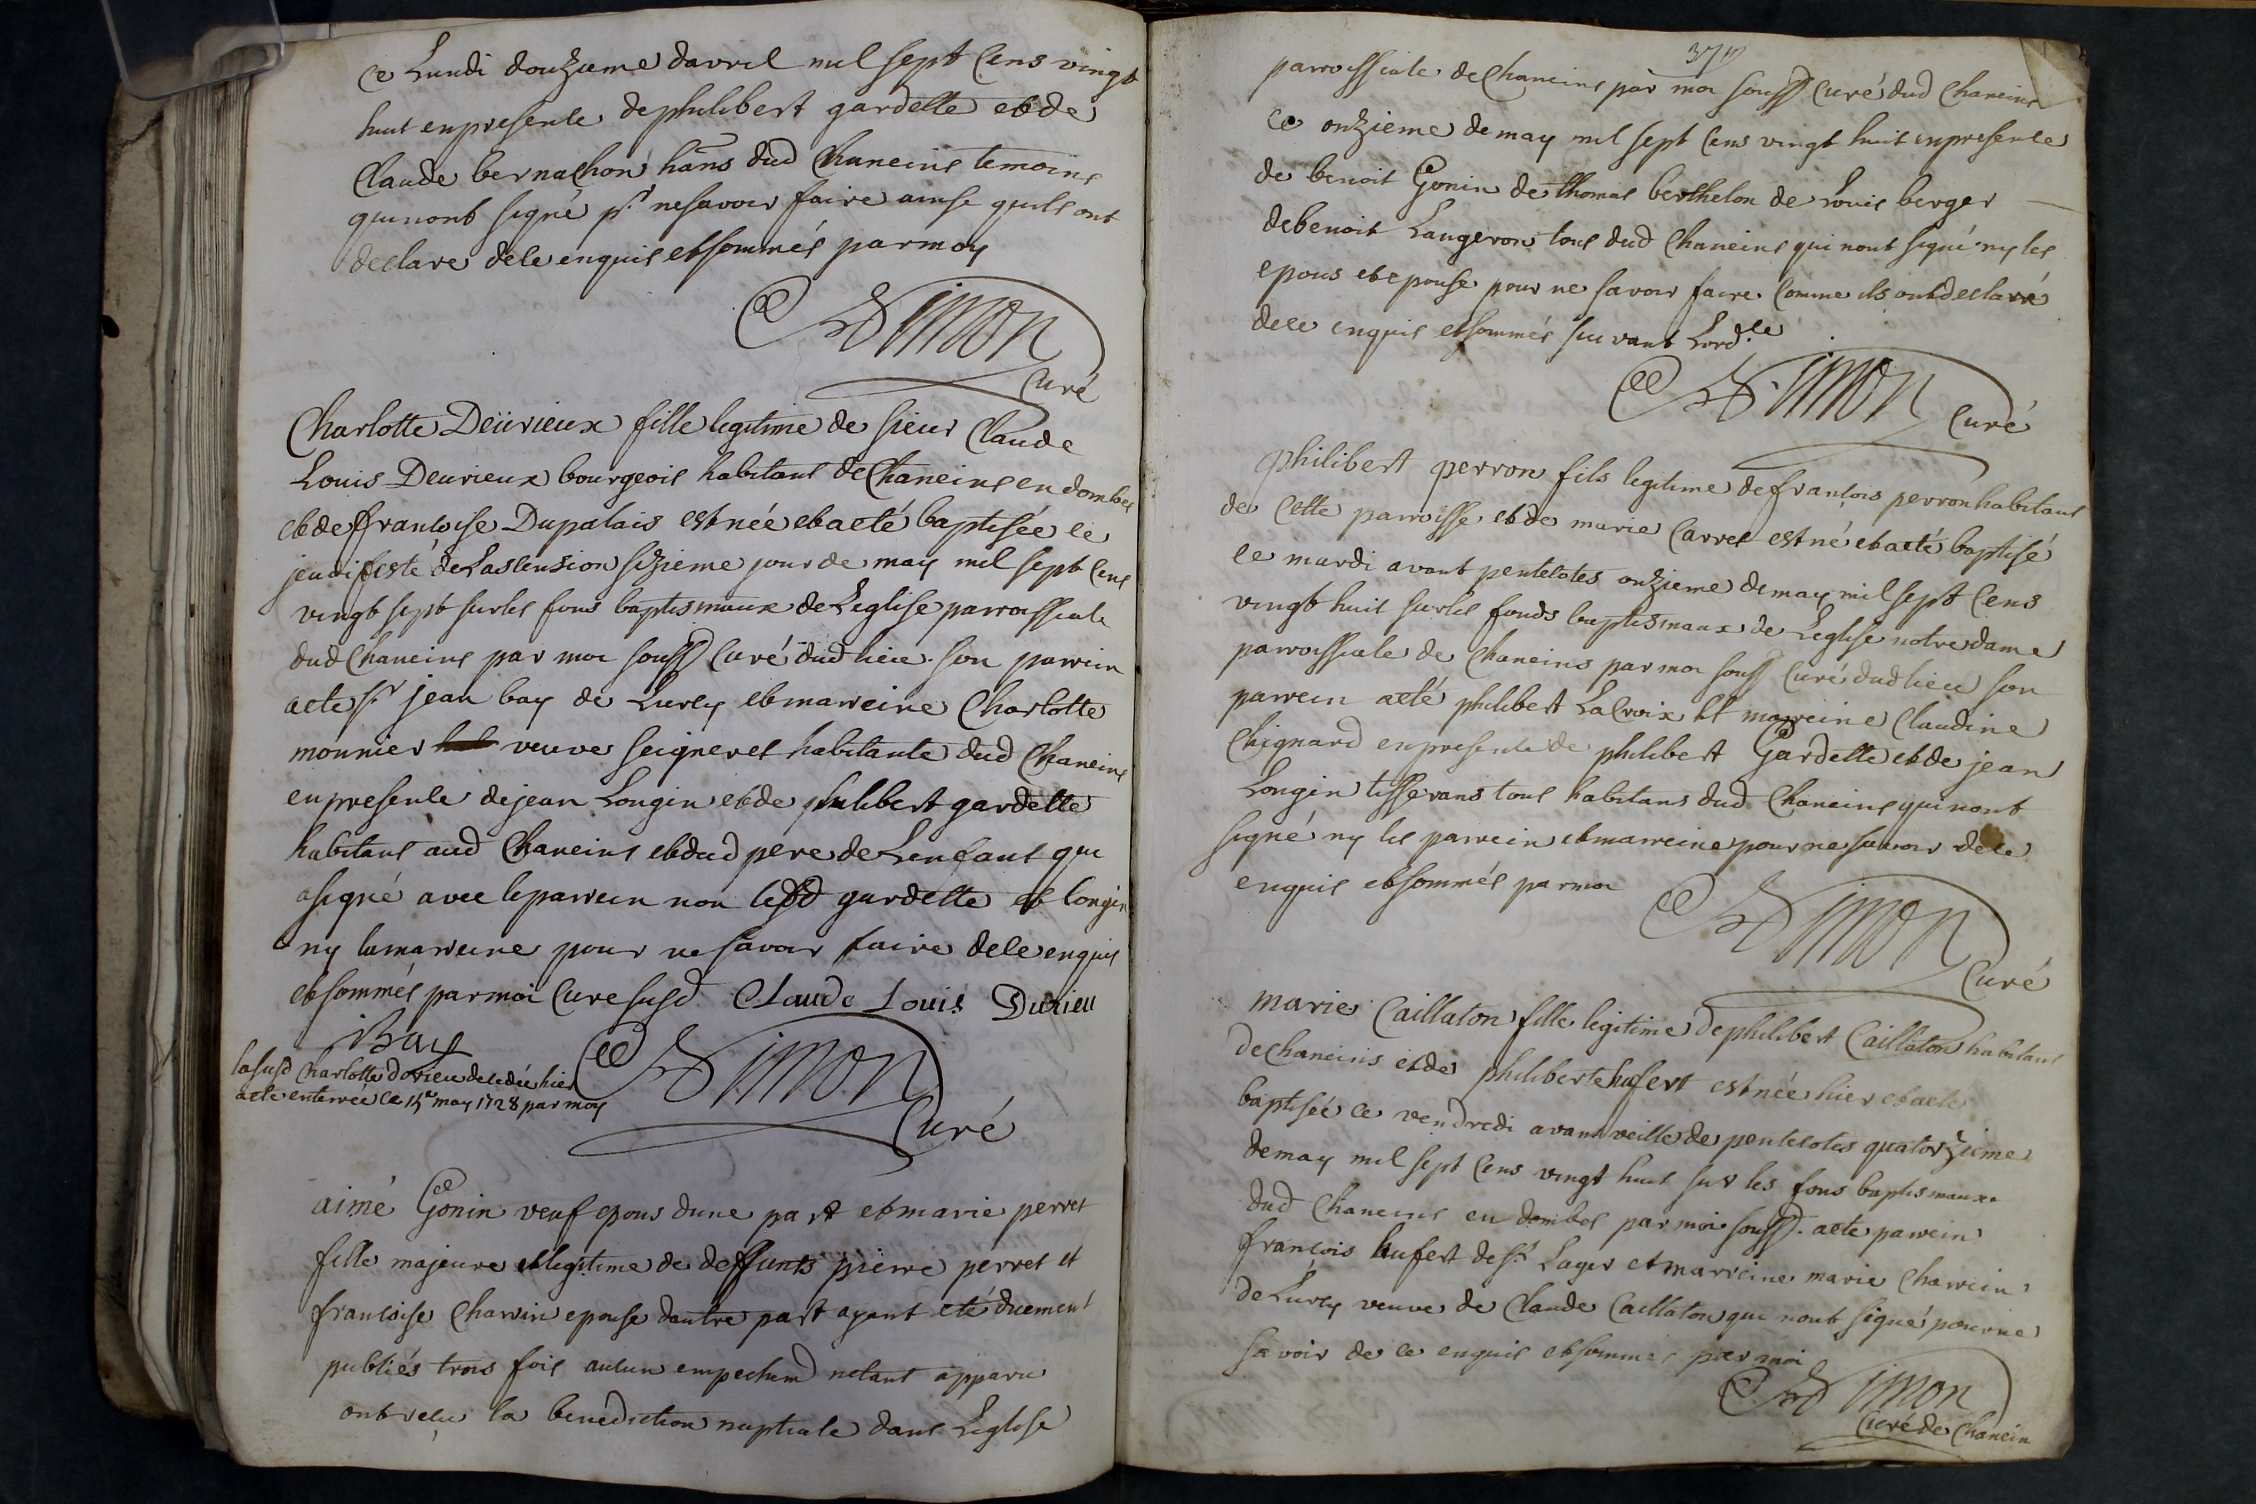 ce Lundi douzieme davril mil sept Cens vingt
huit enpresence dephilibert gardette etde
Claude bernachon hans dud Chaneins temoins
quinont signé pr. nesavoir faire ainse quils ont
declare dece enquis etsommés parmoy
Simon
Curé
Charlotte Deürieux fille legitime de sieur Claude
Louis Deurieux bourgeois habitant deChaneins en dombes
etdeffrancoise Dupalais estnée etaeté baptisée le
jeudi feste deLascension sizieme jour de may mil sept Cens
vingt sept surles fons baptismaux deLeglise parroissiale
dud Chaneins par moi soussd Curé dud lieu. son parrein
aete sr jean bay de Lurcy etmarreine Charlotte
monnier veuve seigneret habitante dud Chaneins
enpresence dejean Longin etde philibert gardette
habitans aud Chaneins etdud pere deLenfant qui
asigné avec leparrein non lesd gardette et longin
ny lamarreine pour nesavoir faire dece enquis
etsommés parmoi Curé susd. Claude Louis Durieu
Bay
lasusd Charlotte dorieu decedée hier
aeté enterrée ce 15e may 1728 par moy
Simon
Curé
aimé Gonin veuf epous dune part etmarie perret
fille majeure etlegitime de deffunts pierre perret et
francoise Charvin epouse dautre part ayant eté duement
publiés trois fois aucun empechemd netant apparu
ont reçu la benediction nuptiale dans Leglise
374
parroissiale deChaneins par moi soussd Curé dud Chaneins
ce onzieme de may mil sept Cens vingt huit enpresence
de benoit Gonin de thomas berthelon de Louis berger
debenoit Laugeron tous dud Chaneins qui nont signé ny les
epous etepouse pour ne savoir faire Comme ils ontdeclaré
dece enquis etsommés suivant Lord.ce
Simon
Curé
philibert perron fils legitime defrançois perron habitant
de Cette parroisse etde marie Carret est né etaeté baptisé
le mardi avant pentecotes onzieme demay mil sept Cens
vingt huit surles fonds baptismaux de Leglise notre dame
parroissiale de Chaneins par moi soussd Curé dud lieu son
parrein aeté philibert LaCroix et marreine Claudine
Chignard enpresence de philibert Gardette etde jean
Longin tisserans tous habitans dud Chaneins quinont
signé ny les parrein etmarreine pour ne savoir dece
enquis etsommés parmoi
Simon
Curé
marie Caillaton fille legitime dephilibert Caillaton habitant
deChaneins etde philiberte hufert estnée hier etaeté
baptisée ce vendredi avant veille de pentecotes quatorzieme
demay mil sept Cens vingt huit sur les fons baptismaux
dud Chaneins en dombes par moi soussd. aete parrein
françois hufert de st Lager et marreine marie Charvein
deLurcy veuve de Claude Caillaton qui nont signé pourne
savoir de ce enquis etsommés par moi
Simon
Curé de Chanein